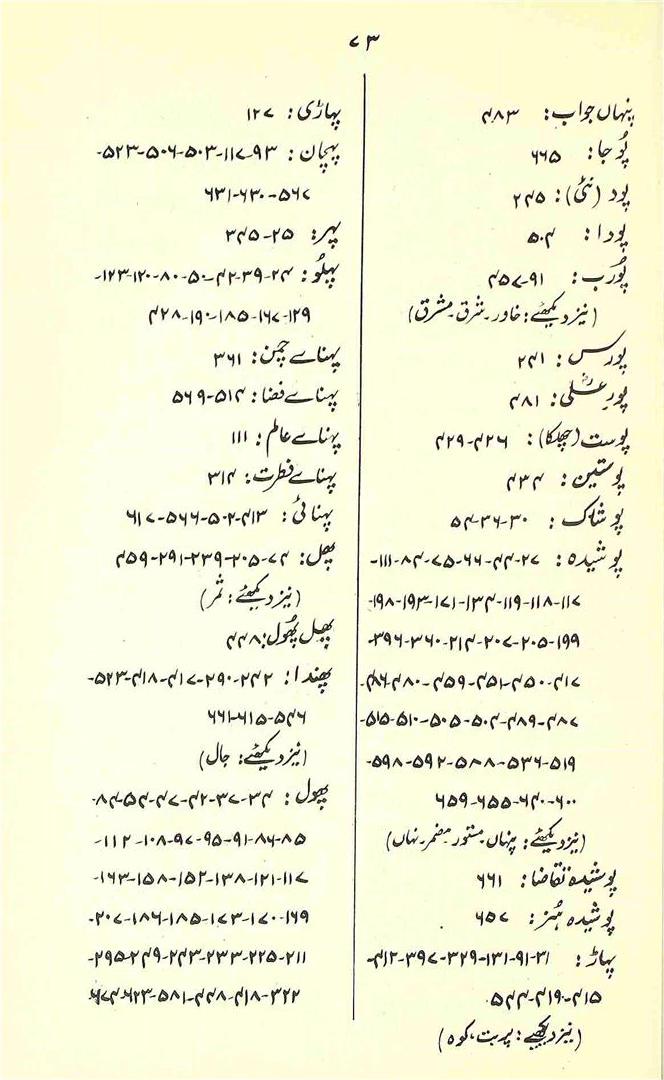 ۷۳
پنہاں جواب: ۴۸۳
پُوجا: ۶۶۵
پود (نئی): ۲۴۵
پودا: ۵۰۴
پُورب: ۹۱-۴۵۷
(نیز دیکھئے: خاور-شرق-مشرق)
پورس: ۲۴۱
پورِ علیؓ: ۴۸۱
پوست (چھلکا): ۴۲۶-۴۲۹
پوستین: ۴۳۴
پوشاک: ۳۰-۳۶-۵۴
پوشیدہ: ۲۷-۴۴-۶۶-۷۵-۸۴-۱۱۱-
۱۱۷-۱۱۸-۱۱۹-۱۳۴-۱۷۱-۱۹۳-۱۹۸-
۱۹۹-۲۰۵-۲۰۷-۲۱۴-۳۶۰-۳۹۶-
۴۱۷-۴۵۰-۴۵۱-۴۵۹-۴۸۰-۴۸۶-
۴۸۷-۴۸۹-۵۰۴-۵۰۵-۵۱۰-۵۱۵-
۵۱۹-۵۳۶-۵۸۸-۵۹۲-۵۹۸-
۶۰۰-۶۴۰-۶۵۵-۶۵۹
(نیز دیکھئے: پنہاں-مستور-مضمر-نہاں)
پوشیدہ تقاضا: ۶۶۱
پوشیدہ ہنر: ۶۵۷
پہاڑ: ۳۱-۹۱-۱۳۱-۳۲۹-۳۹۷-۴۱۲-
۴۱۵-۴۱۹-۵۴۴
(نیز دیکھیے: پربت، کوہ)
پہاڑی: ۱۲۷
پہچان: ۹۳-۱۱۷-۵۰۳-۵۰۶-۵۲۳-
۵۶۷-۶۳۰-۶۳۱
پہر: ۲۵-۳۴۵
پہلُو: ۲۴-۳۹-۴۲-۵۰-۸۰-۱۲۰-۱۲۳-
۱۲۹-۱۶۷-۱۸۵-۱۹۰-۴۲۸
پہنائے چمن: ۳۶۱
پہنائے فضا: ۵۱۴-۵۶۹
پہنائے عالم: ۱۱۱
پہنائے فطرت: ۳۱۴
پہنائی: ۴۱۳-۵۰۲-۵۶۶-۶۱۷
پھل: ۷۴-۲۰۵-۲۳۹-۲۹۱-۴۵۹
(نیز دیکھئے: ثمر)
پھل پھُول: ۴۴۸
پھندا: ۲۴۲-۲۹۰-۴۱۷-۴۱۸-۵۲۳-
۵۴۶-۶۱۵-۶۶۱
(نیز دیکھئے: جال)
پھول: ۳۴-۳۷-۴۲-۴۷-۵۴-۸۴-
۸۵-۸۶-۹۱-۹۵-۹۷-۱۰۸-۱۱۲-
۱۱۷-۱۲۱-۱۳۸-۱۵۲-۱۵۸-۱۶۳-
۱۶۹-۱۷۰-۱۷۳-۱۸۵-۱۸۶-۲۰۷-
۲۱۱-۲۲۵-۲۳۳-۲۴۳-۲۴۹-۲۹۵-
۳۲۲-۴۱۸-۴۴۸-۵۸۱-۶۲۳-۶۷۴